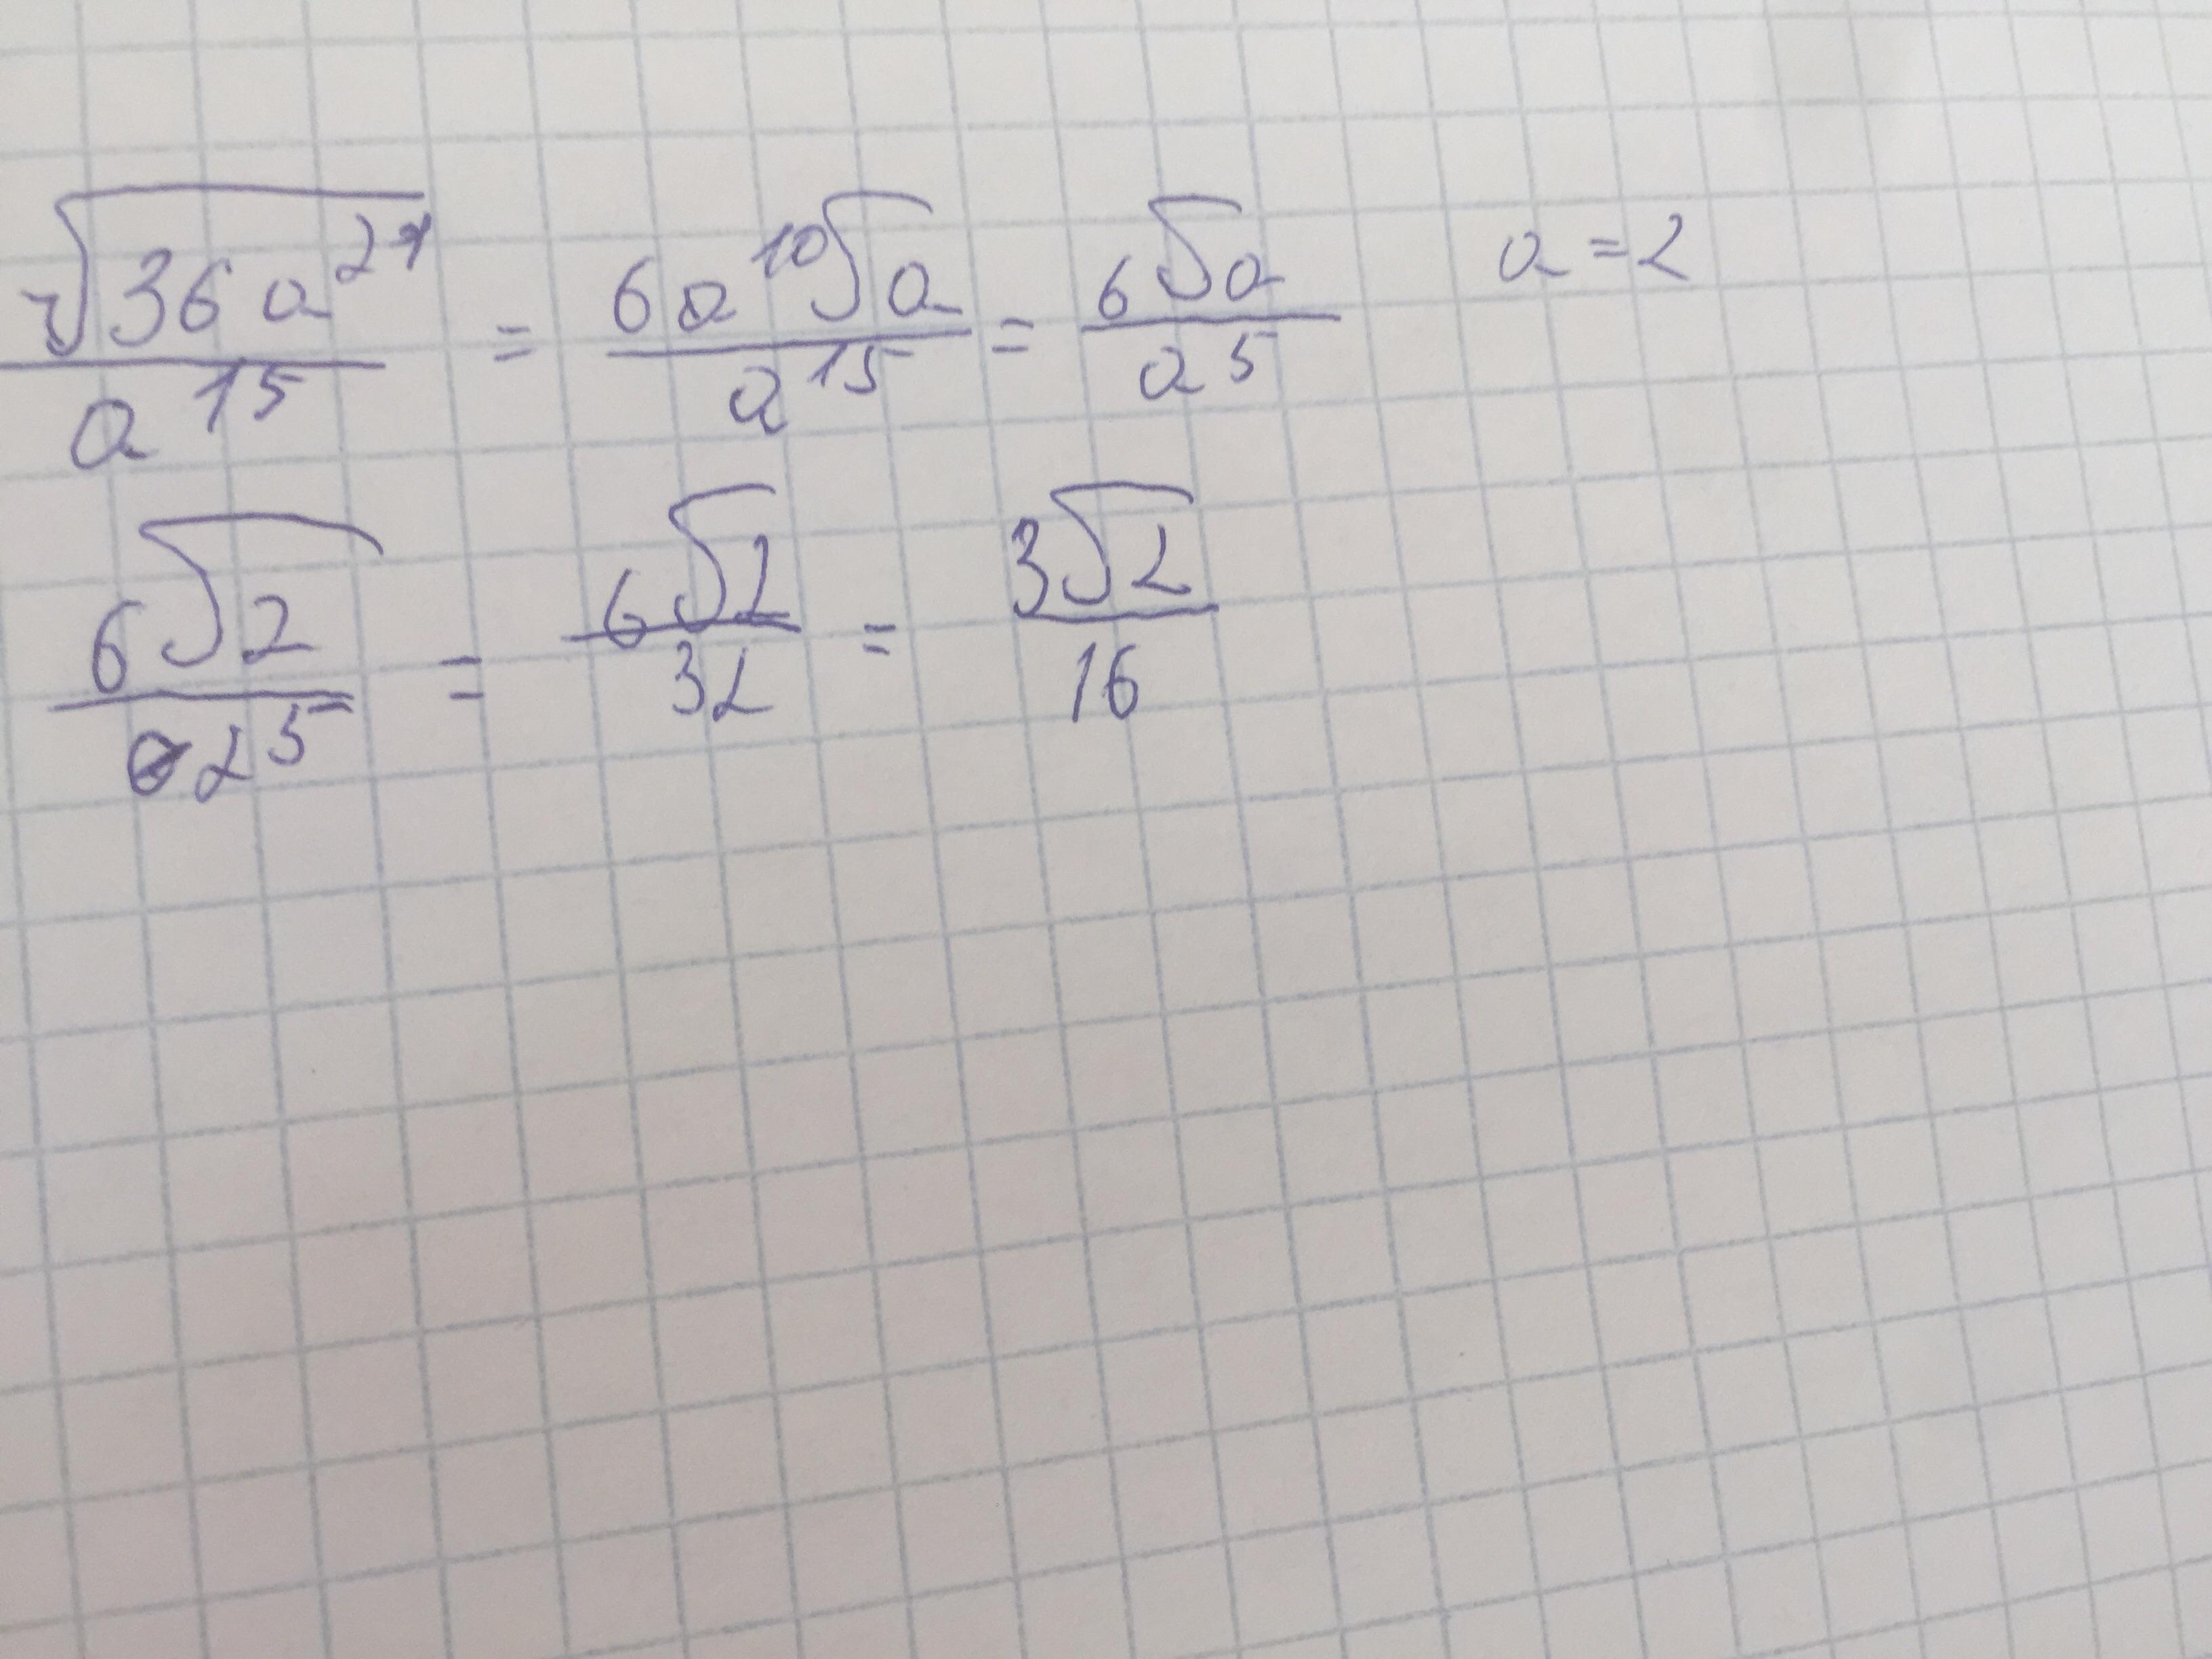 √36a²¹ / a¹⁵ = 6a¹⁰√a / a¹⁵ = 6√a / a⁵ a = 2
6√2 / 2⁵ = 6√2 / 32 = 3√2 / 16